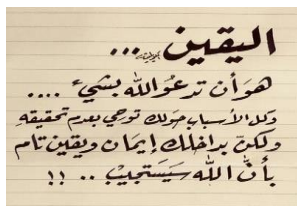 اليقين ...
هو أن تدعو الله بشيء ....
وكل الأسباب حولك توحي بعدم تحقيقه
ولكن بداخلك إيمان ويقين تام
بأن الله سَيَستَجيبْ .. !!